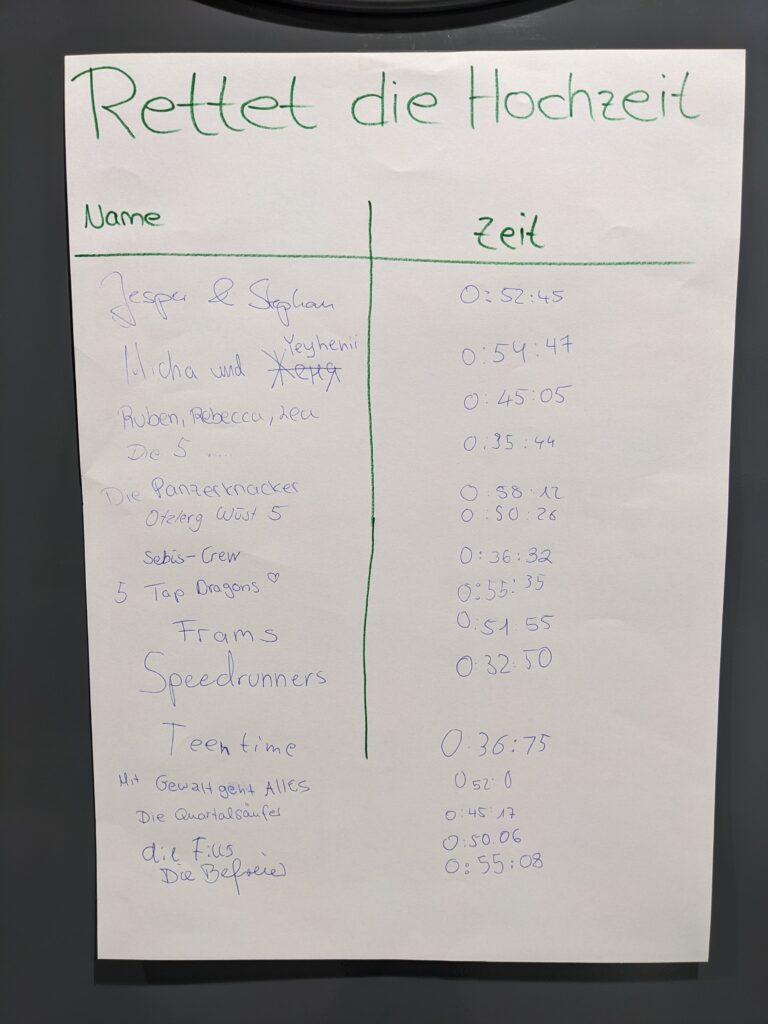 Rettet die Hochzeit
Name Zeit
Jesper & Stephan 0:52:45
Yevhenii
Micha und Женя 0:54:47
Ruben, Rebecca, Lea 0:45:05
Die 5 ..... 0:35:44
Die Panzerknacker 0:58:12
Otzberg Wüst 5 0:50:26
Sebis-Crew 0:36:32
5 Tap Dragons ♡ 0:55:35
Frams 0:51 55
Speedrunners 0:32:50
Teentime 0.36:75
Mit Gewalt geht Alles 0 52:0
Die Quartalsäufer 0:45:17
die Fius 0:50.06
Die Befreier 0:55:08